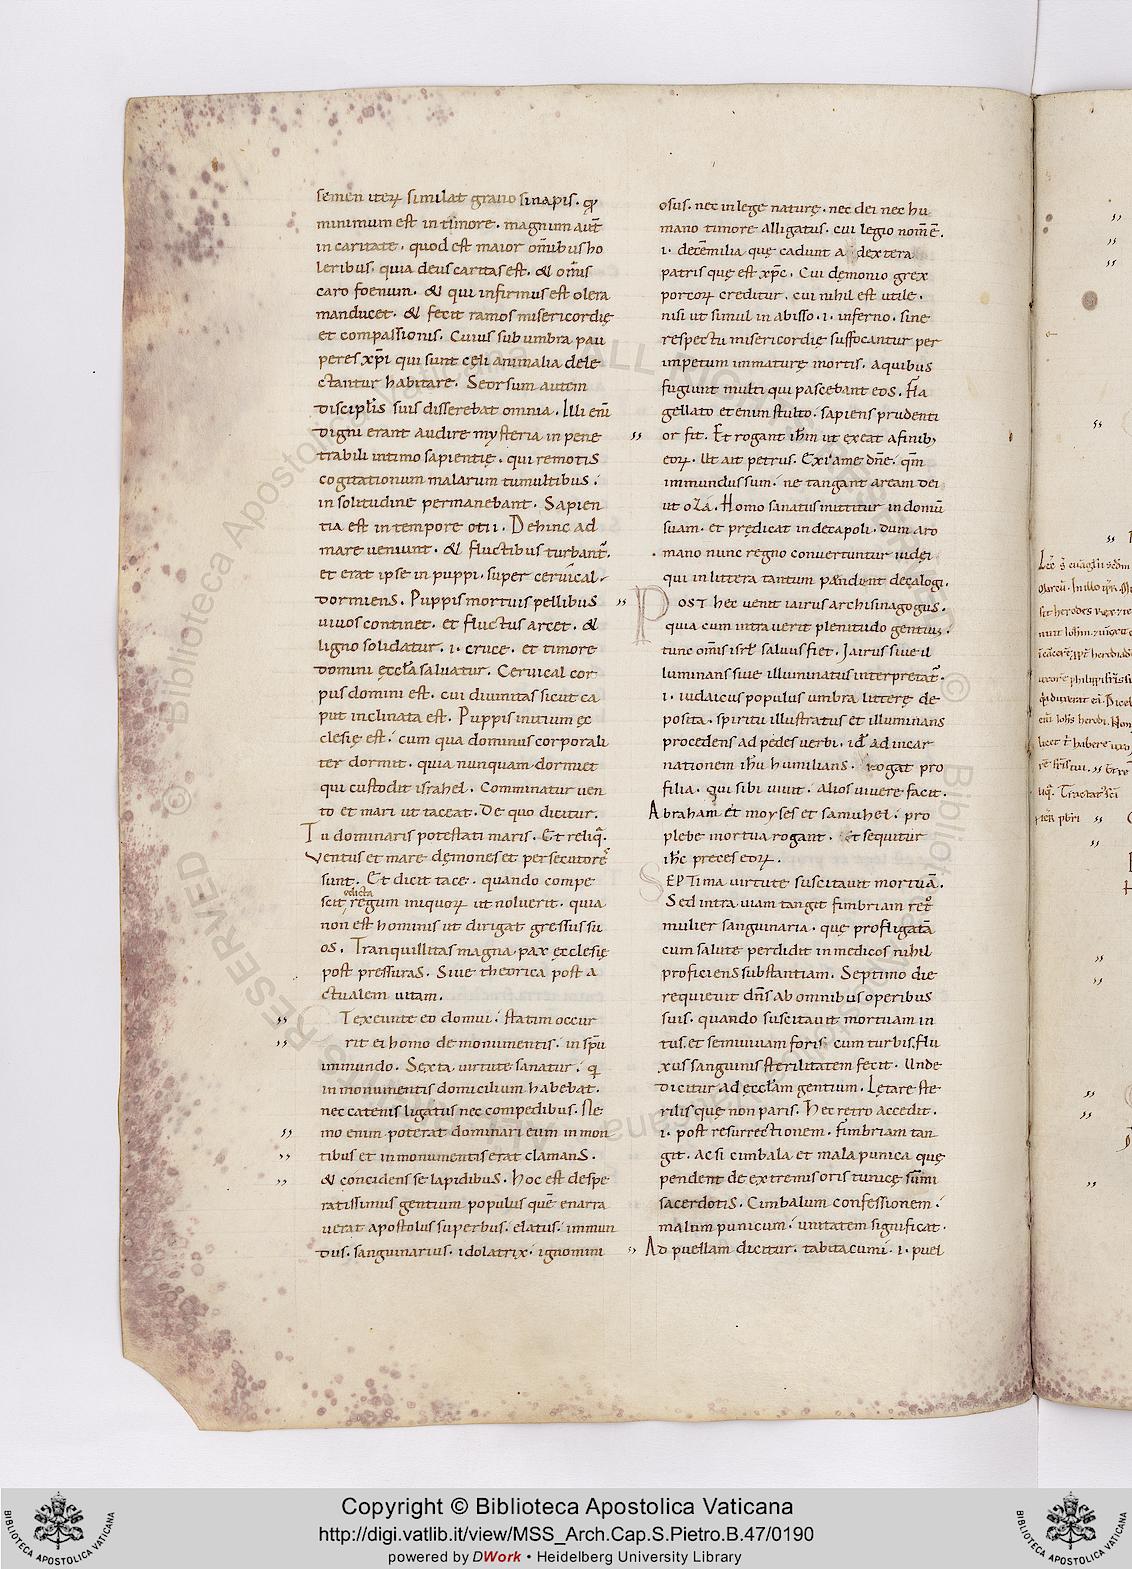 semen iterꝝ similat grano sinapis. qđ
minimum est in timore. magnum aut̄
in caritate. quod est maior om̄ibus ho
leribus. quia deus caritas est. & om̄is
caro foenum. & qui infirmus est olera
manducet. & fecit ramos misericordię
et compassionis. Cuius sub umbra pau
peres xp̄i qui sunt cęli animalia dele
ctantur habitare. Seorsum autem
discipl̄is suis disserebat omnia. Illi eni̅
digni erant audire mysteria in pene
trabili intimo sapientię. qui remotis
cogitationum malarum tumultibus.
in solitudine permanebant. Sapien
tia est in tempore otii. Dehinc ad
mare veniunt. & fluctibus turbant᷑.
et erat ipse in puppi. super cervical
dormiens. Puppis mortuis pellibus
vivos continet. et fluctus arcet. &
ligno solidatur. i. cruce. et timore
domini ęccl̄a salvatur. Cervical cor
pus domini est. cui divinitas sicut ca
put inclinata est. Puppis initium ęc
clesię est. cum qua dominus corporali
ter dormit. quia nunquam dormiet
qui custodit israhel. Comminatur ven
to et mari ut taceat. De quo dicitur.
Tu dominaris potestati maris. Et reliq̄.
Ventus et mare dęmones et persecutore᷒
sunt. Et dicit tace. quando compe
scit edicta regum iniquoꝝ ut noluerit. quia
non est hominis ut dirigat gressus su
os. Tranquillitas magna. pax ęcclesię
post pressuras. Sive theorica post a
ctualem vitam.
Et exeunte eo domui. statim occur
rit ei homo de monumentis. in sp̄u
immundo. Sexta virtute sanatur. q̄
in monumentis domicilium habebat.
nec catenis ligatus nec compedibus. Ne
mo enim poterat dominari eum in mon
tibus et in monumentis erat clamans.
& concidens se lapidibus. hoc est despe
ratissimus gentium populus quē enarra
verat apostolus superbus. elatus. immun
dus. sanguinarius. idolatrix. ignomini
osus. nec in lege naturę. nec dei nec hu
mano timore alligatus. cui legio nom̄ ē.
i. decēmilia quę cadunt a dextera
patris quę est xp̄c. Cui dęmonio grex
porcoꝝ creditur. cui nihil est utile.
nisi ut simul in abisso. i. inferno. sine
respectu misericordię suffocantur per
impetum immaturę mortis. a quibus
fugiunt multi qui pascebant eos. Fla
gellato etenim stulto. sapiens prudenti
or fit. Et rogant ih̄m ut exeat a finib;
eoꝝ. Ut ait petrus. Exi a me dn̄e. qm̄
immundus sum. ne tangant arcam dei
ut oza. Homo sanatus mittitur in domū
suam. et prędicat in decapoli. dum a ro
mano nunc regno convertuntur iudęi
qui in littera tantum pendent decalogi.
Post hęc venit iairus archisinagogus.
quia cum intraverit plenitudo gentiū.
tunc om̄is isrl̄ salvus fiet. Jairus sive il
luminans sive illuminatus interpretat᷑.
i. iudaicus populus umbra litterę de
posita. spiritu illustratus et illuminans
procedens ad pedes verbi. id̄ ad incar
nationem ih̄u humilians. rogat pro
filia. qui sibi vivit. alios vivere facit.
Abraham et moyses et samuhel. pro
plebe mortua rogant. et sequitur
ih̄c preces eoꝝ.
Septima virtute suscitavit mortuā.
Sed intra viam tangit fimbriam retro
mulier sanguinaria. quę profligatā
cum salute perdidit in medicos nihil
proficiens substantiam. Septimo die
requievit dn̄s ab omnibus operibus
suis. quando suscitavit mortuam in
tus. et semivivam foris cum turbis. flu
xus sanguinis sterilitatem fecit. Unde
dicitur ad eccl̄am gentium. Lętare ste
rilis quę non paris. Hęc retro accedit.
i. post resurrectionem. fimbriam tan
git. ac si cimbala et mala punica quę
pendent de extremis oris tunicę sum̄i
sacerdotis. Cimbalum confessionem.
malum punicum. unitatem significat.
Ad puellam dicitur. tabita cumi. i. puel
Copyright © Biblioteca Apostolica Vaticana
http://digi.vatlib.it/view/MSS_Arch.Cap.S.Pietro.B.47/0190
powered by DWork • Heidelberg University Library